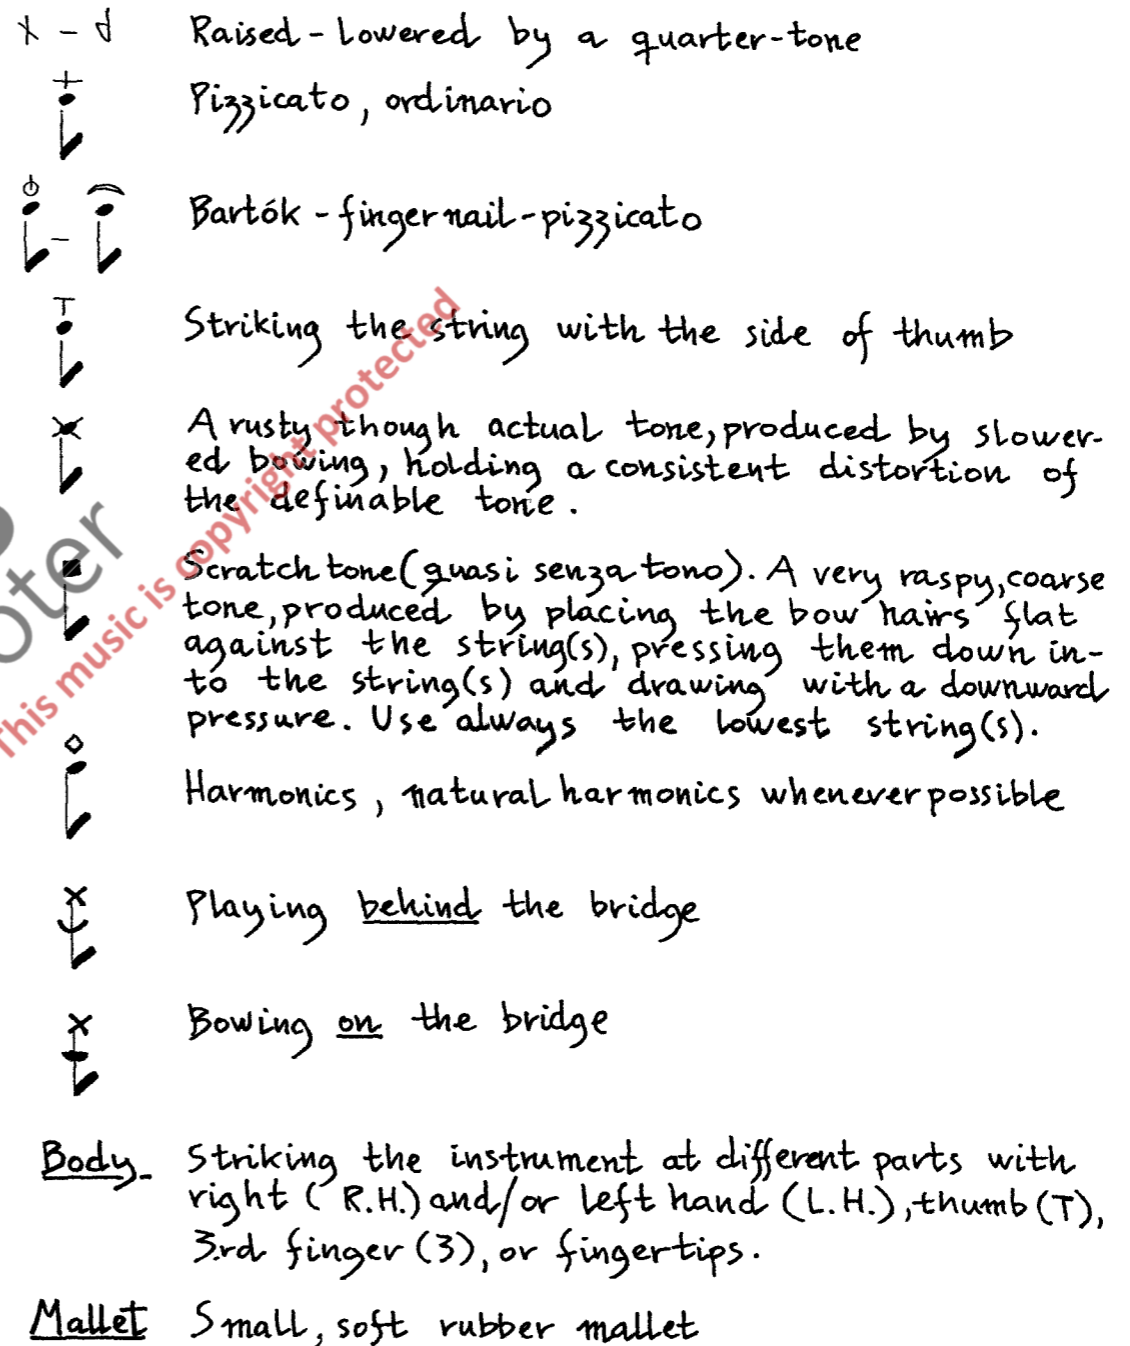 Raised - Lowered by a quarter-tone
Pizzicato, ordinario
Bartók - fingernail - pizzicato
T
Striking the string with the side of thumb
A rusty though actual tone, produced by slower-
ed bowing, holding a consistent distortion of
the definable tone.
Scratch tone (quasi senza tono). A very raspy, coarse
tone, produced by placing the bow hairs flat
against the string(s), pressing them down in-
to the string(s) and drawing with a downward
pressure. Use always the lowest string(s).
Harmonics, natural harmonics whenever possible
Playing behind the bridge
Bowing on the bridge
Body - Striking the instrument at different parts with
right (R.H.) and/or left hand (L.H.), thumb (T),
3rd finger (3), or fingertips.
Mallet Small, soft rubber mallet
This music is copyright protected
oter